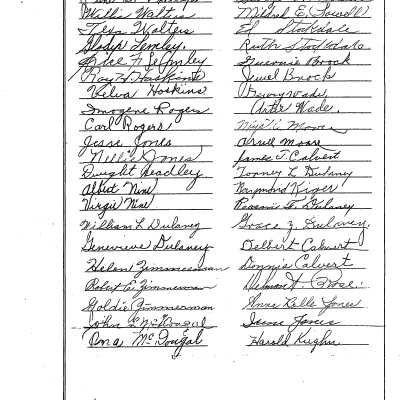 Willis Walters
Mildred E.
Texa Walters
Ed Stockdale
Gladys Lemley
Ruth Stockdale
Lemley
Brock
Roy Hoskins
Jewel Brock
Velva Hoskins
Wade
Imogene Rogers
Arthr Wade.
Carl Rogers
Moore
Jesse Jones
Arvell Moore
Nellie Jones
James T. Calvert
Dwight Headley
L. Dulaney
Albert Nine
Raymond Kiger
Virgil Nine
Dulaney
William L Dulaney
Grace Z. Dulaney.
Genevieve Dulaney
Delbert Calvert
Helen Zimmerman
Donnie Calvert
Robert E. Zimmerman
Goldie Zimmerman
Anna Belle Jones
John McDougal
Irene Jones
Ona McDougal
Harold Kughn